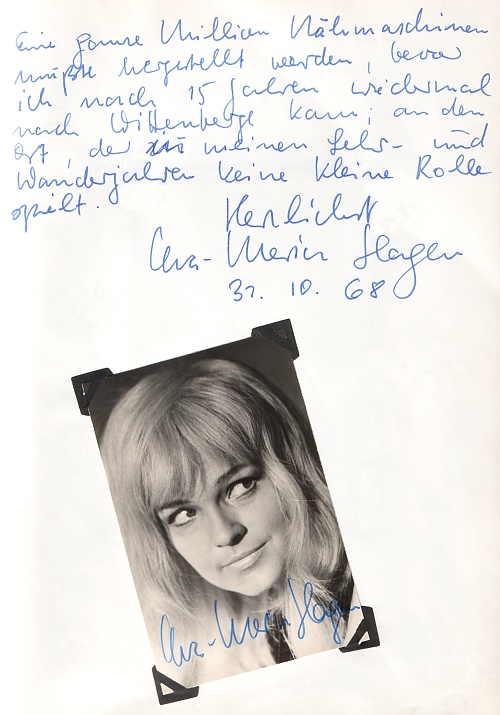 Eine ganze Million Nähmaschinen
mußte hergestellt werden, bevor
ich nach 15 Jahren wiedermal
nach Wittenberge kam; an den
Ort, der in meinen Lehr- und
Wanderjahren keine kleine Rolle
spielt.
Herzlichst
Eva-Maria Hagen
31. 10. 68
Eva-Maria Hagen